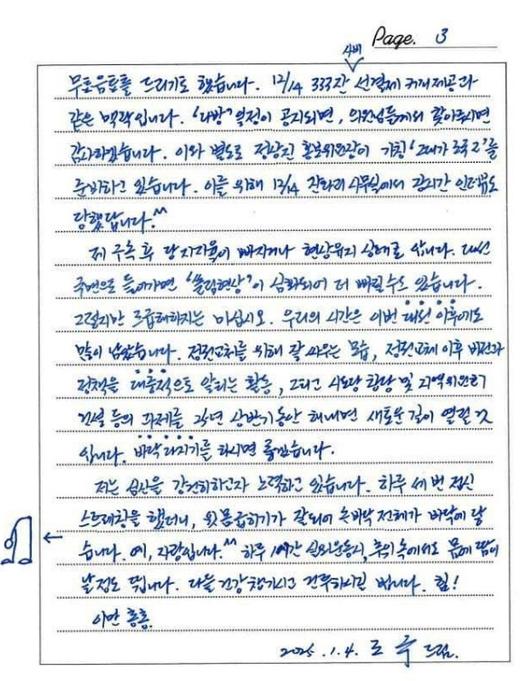 Page. 3
사비
무료음료를 드리기도 했습니다. 12/14 333잔 선결제 커피제공과
같은 맥락입니다. '다방' 일정이 공지되면, 의원님들께서 찾아주시면
감사하겠습니다. 이와 별도로 정상진 홍보위원장이 가칭 '조국 2'를
준비하고 있습니다. 이를 위해 12/14 사무실에서 장시간 인터뷰도
당했답니다.^^
제 구속 후 당 지지율이 빠지거나 현상유지 상태로 압니다. 대선
국면으로 들어가면 '쏠림현상'이 심화되어 더 빠질 수도 있습니다.
그렇지만 조급해하지는 마십시오. 우리의 시간은 이번 대선 이후에도
많이 남았습니다. 정권교체를 위해 잘 싸우는 모습, 정권교체 이후 비전과
정책을 대중적으로 알리는 활동, 그리고 시도당 합당 및 지역위원회
건설 등의 과제를 25년 상반기 동안 해내면 새로운 길이 열릴 것
입니다. 바닥 다지기를 하시면 좋겠습니다.
저는 심신을 강건히 하고자 노력하고 있습니다. 하루 세 번 전신
스트레칭을 했더니, 윗몸 굽히기가 잘되어 손바닥 전체가 바닥에 닿
습니다. 예, 자랑입니다.^^ 하루 1시간 실외운동시, 추위 속에서도 몸에 땀이
날 정도 뜁니다. 다들 건강 챙기시고 건투하시길 빕니다. 힘!
이만 총총.
2025. 1. 4. 조 국 드림.